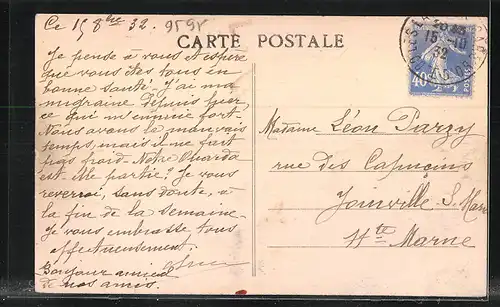 Ce 15 8bre 32.
9595
CARTE POSTALE
Je pense à vous et espère
que vous êtes tous en
bonne santé. J'ai ma
migraine depuis hier
ce qui m'ennuie fort.
Nous avons le mauvais
temps, mais il ne fait
pas froid. Notre
est-elle partie? Je vous
reverrai, sans doute, à
la fin de la semaine.
Je vous embrasse tous
affectueusement.
Bonjour
de nos amis.
15 -10
32
40c
POSTES
Madame Léon Parzy
rue des Capucins
Joinville S. Marne
Hte Marne